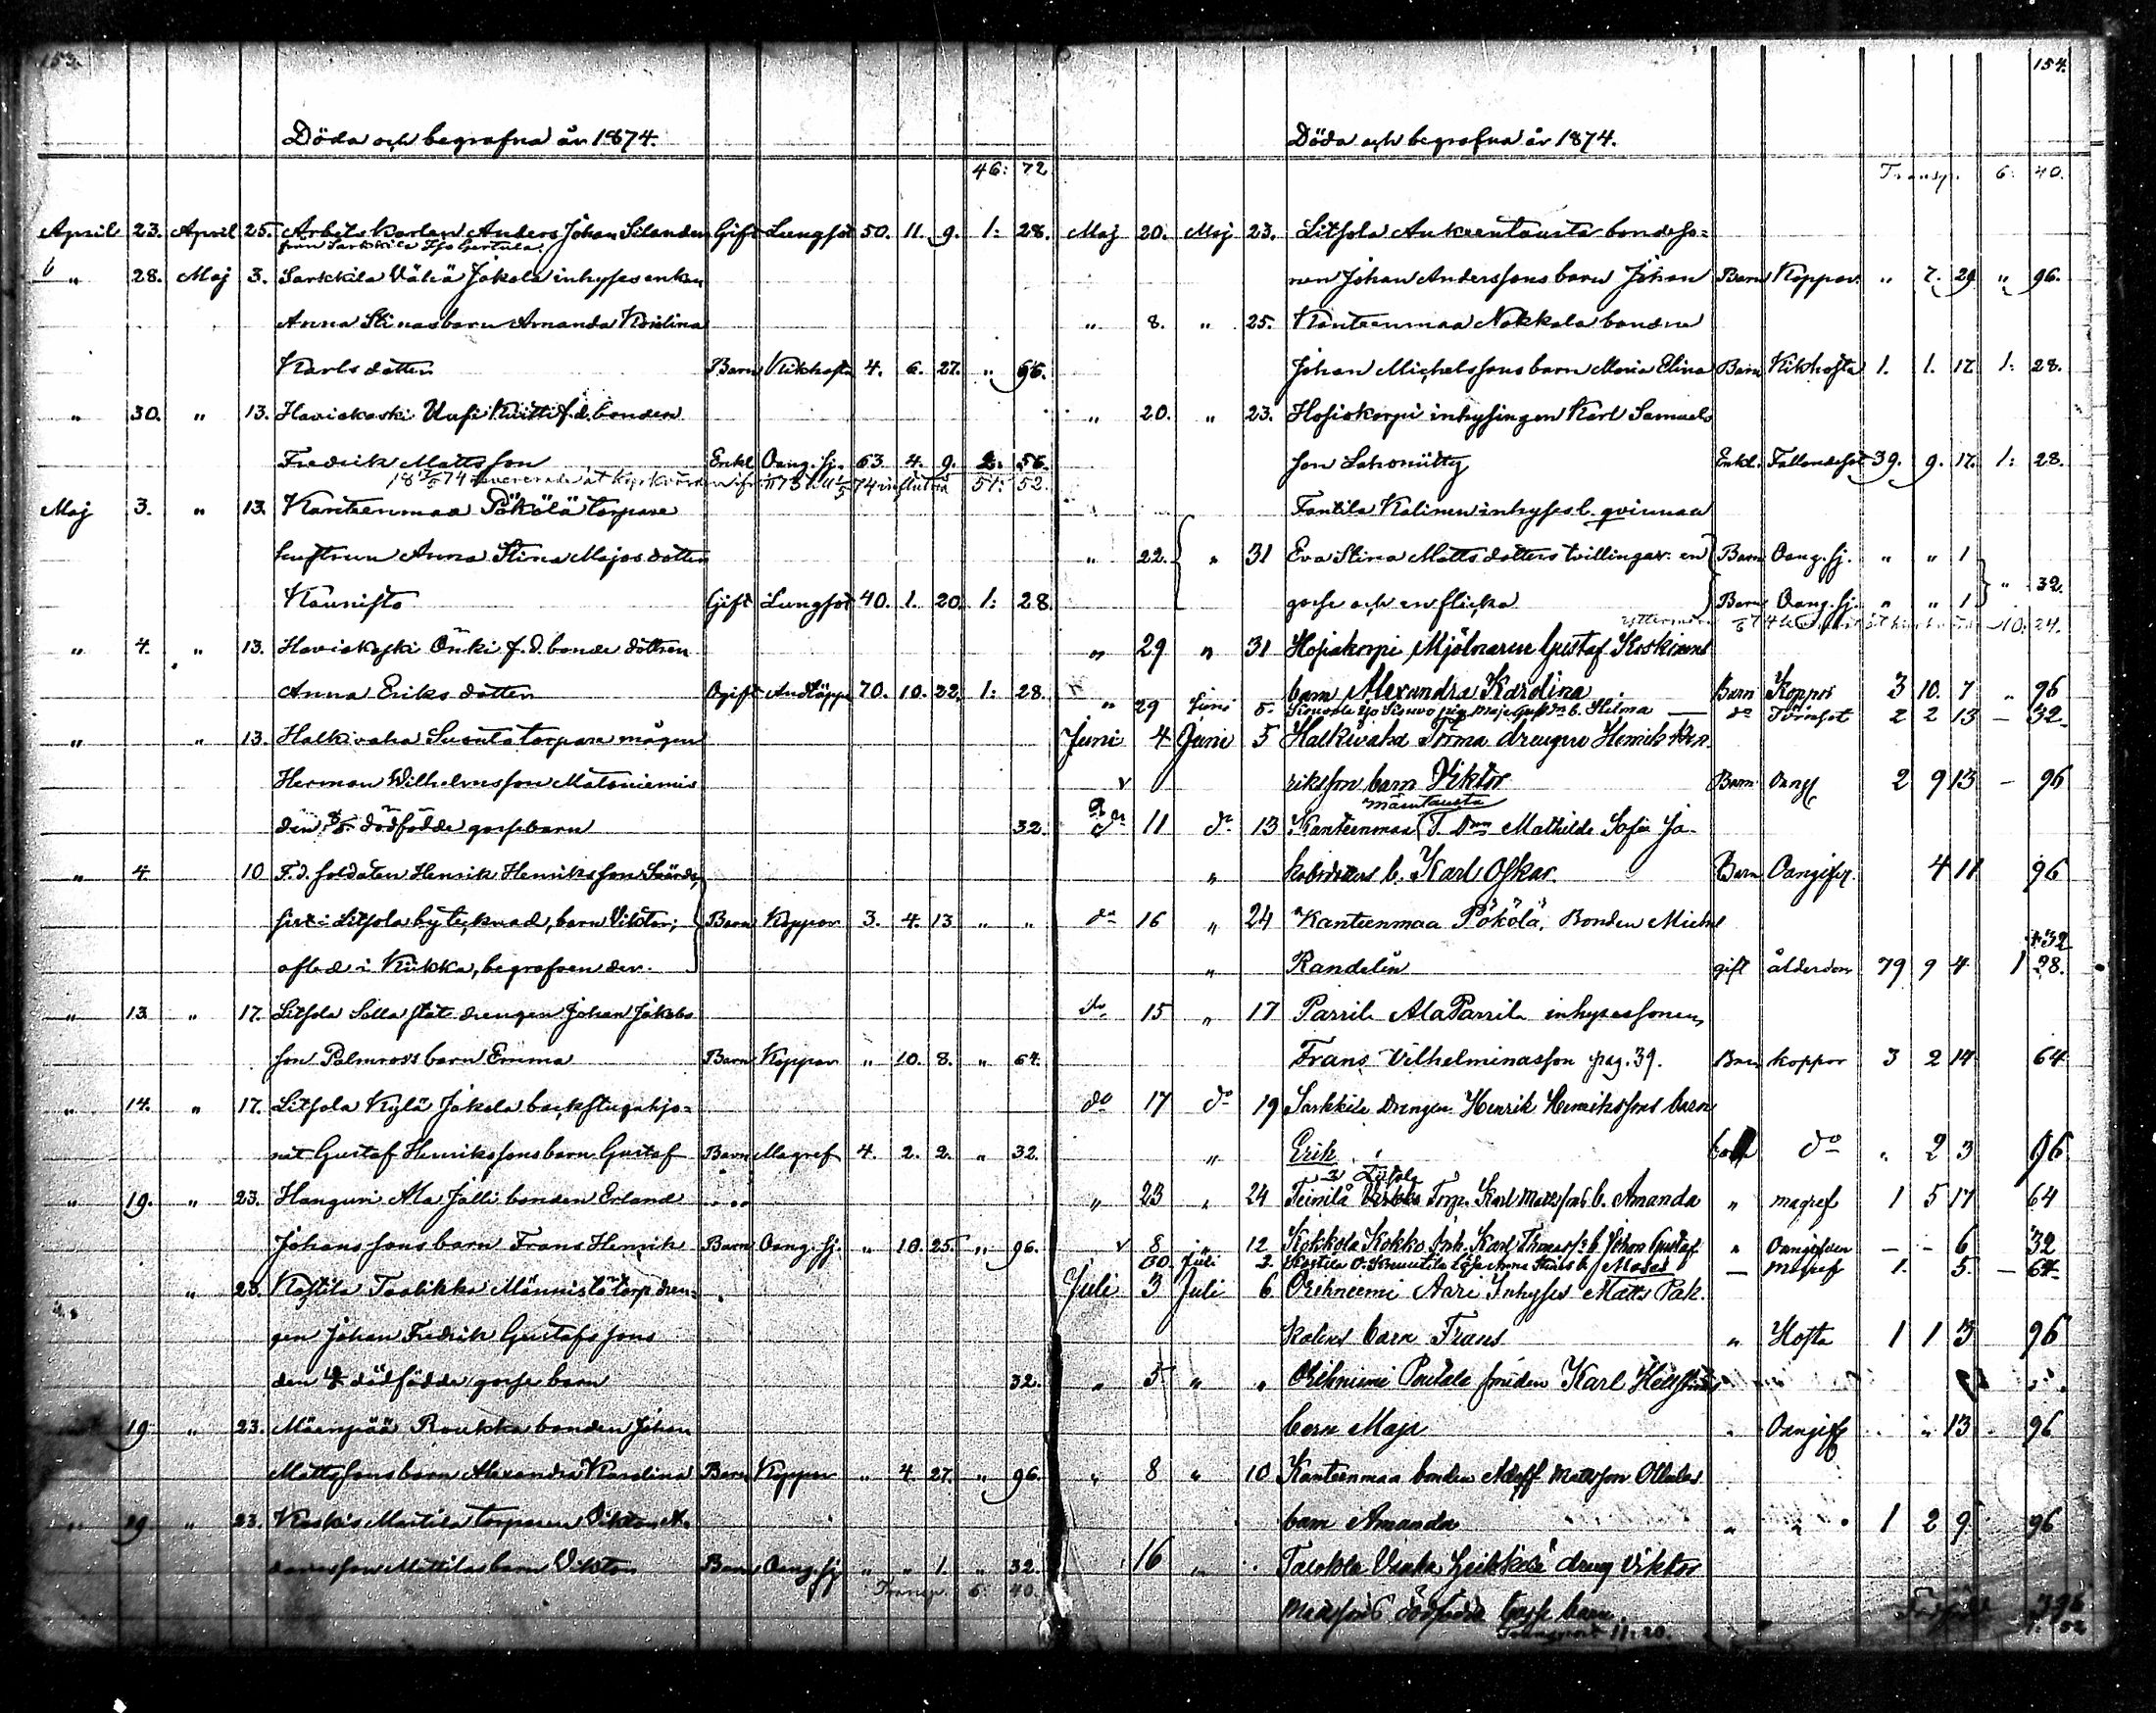 153.
Döda och begrafna år 1874.
46: 72
April 23. April 25. Arbets karlen Anders Johan Silander Gift Lungsot 50. 11. 9. 1: 28.
från Sarkkila
" 28. Maj 3. Sarkkila Vähä Jakola inhyses enkan
Anna Stinas barn Amanda Kristina
Karlsdotter Barn Kikhosta 4. 6. 27. " 96.
" 30. " 13. Haviokoski Uusi Kvitti f.d. bonden
Fredrik Mattsson Enkl. Oang. sj. 63. 4. 9. 2. 56.
51: 52.
Maj 3. " 13. Kanteenmaa Pökölä torpare
hustrun Anna Stina Majasdotter
Kaunisto Gift Lungsot 40. 1. 20. 1: 28
" 4. " 13. Haviokoski Önki f.d. bonde dottren
Anna Eriksdotter Ogift Andtäppa 70. 10. 22. 1: 28.
" " 13. Halkivaha Suonta torpare mågen
Herman Wilhelmsson Mataniemis
den dödfödde gossebarn 32.
" 4. 10 F.d. soldaten Henrik Henriksson
i Litsola by tecknad, barn Viktor; Barn Koppor 3. 4. 13 " "
afled i Kiikka, begrafven der.
" 13 " 17. Litsola Solla stat drengen Johan Jakobs
son Palmroos barn Emma Barn Koppor " 10. 8. " 64.
" 14. " 17. Litsola Kylä Jakola backstuguhjo=
net Gustaf Henrikssons barn Gustaf Barn Magref 4. 2. 2. " 32.
" 19. " 23. Hanguri Ala Jalli bonden Erland
Johanssons barn Frans Henrik Barn Oang. sj. " 10. 25. " 96.
" 23. Kostila Taalikka Männistö torp. dren=
gen Johan Fredrik Gustafssons
den dödfödde gosse barn 32.
19 " 23. Mäenpää Roukka bonden Johan
Mattssons barn Alexandra Karolina Barn Koppor " 4. 27. " 96.
" 19 " 23. Koskis Martila torparen Viktor A.
darsson Mattilas barn Viktor Barn Oang. sj. " " 1. " 32.
Transp. 6: 40.
154.
Döda och begrafna år 1874.
Transp. 6: 40.
Maj 20. Maj 23. Litsola Aukeentausta bondeso=
nen Johan Anderssons barn Johan Barn Koppor. " 7. 29 " 96.
" 8. " 25. Kanteenmaa Nokkala bonden
Johan Michelssons barn Maria Elina Barn Kikhosta 1. 1. 17. 1: 28.
" 20. " 23. Hosiokorpi inhysingen Karl Samuels
son Lahoniitty Enkl. Fallandesot 39. 9. 17. 1: 28.
Fantila Kalinen inhyses l. qvinnan
" 22. " 31 Eva Stina Mattsdotters tvillingar: en Barn Oang. sj. " " 1
gosse och en flicka Barn Oang. sj. " " 1 " 32.
10: 24.
" 29 " 31 Hosiakorpi Mjölnaren Gustaf Koskinens
barn Alexandra Karolina Barn Koppor 3 10. 7 " 96
" 29 Juni 5. b. Hilma — do 2 2 13 — 32.
Juni 4 Juni 5 Halkivaha Torma drengen Henrik Hen-
riksson barn Viktor Barn Oang. 2 9 13 — 96
do 11 do 13 Kanteenmaa T. Mathilda Sofia Ja-
kobsdotters b. Karl Oskar. Barn Oangifven. 4 11 96
do 16 " 24 Kanteenmaa Pökölä, Bonden Michel
" Randelin gift ålderdom 79 9 4 1 28.
do 15 " 17 Parrila Ala Parrila inhysessonen,
Frans Vilhelminasson pag. 39. Barn koppor 3 2 14 64
do 17 do 19 Sarkkila Drengen Henrik Henrikssons barn
" Erik do " 2 3 96
" 23 " 24 Teinilä Torp. Karl Mattssons b. Amanda " magref 1 5 17 64
8 " 12 Kokkola Kokko Inh. Karl Thomass. b. Johan Gustaf " Oangifven — — 6 32
30. Juli 2. Moses — Magref 1. 5. — 64
Juli 3 Juli 6 Orihniemi Aari Inhyses Matts Pak.
kolens barn Frans " Hosta 1 1 3 96
" 5 " " Orihniemi Pentala smeden Karl
barn Maja " Oangif. " " 13 96
" 8 " 10 Kanteenmaa bonden Adolf Mattsson Ollilas
barn Amanda " " 1 2 9 96
16 " Talokla Vaaha dreng Viktor
Mattssons dödfödde gosse barn.
Transport 11: 20.